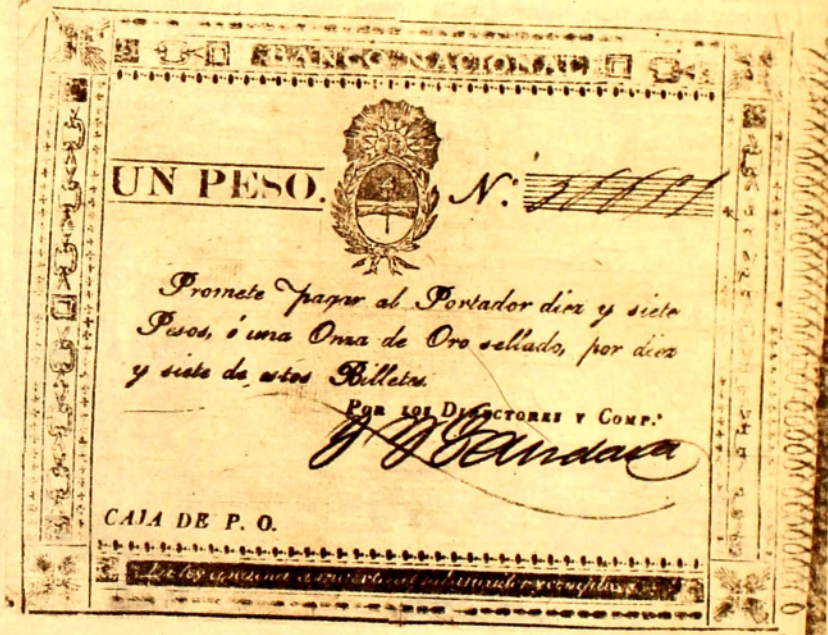 BANCO NACIONAL
UN PESO. N.º
Promete pagar al Portador diez y siete
Pesos, ó una Onza de Oro sellado, por diez
y siete de estos Billetes.
POR LOS DIRECTORES Y COMP.ª
CAJA DE P. O.
La ley